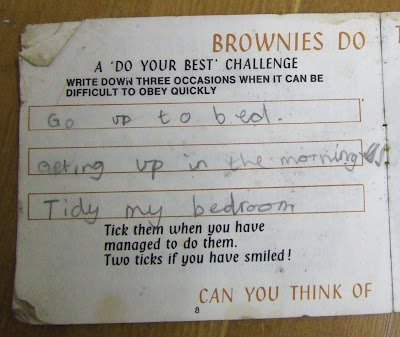 BROWNIES DO
A 'DO YOUR BEST' CHALLENGE
WRITE DOWN THREE OCCASIONS WHEN IT CAN BE
DIFFICULT TO OBEY QUICKLY
Go up to bed.
Getting up in the morning
Tidy my bedroom
Tick them when you have
managed to do them.
Two ticks if you have smiled!
CAN YOU THINK OF
8